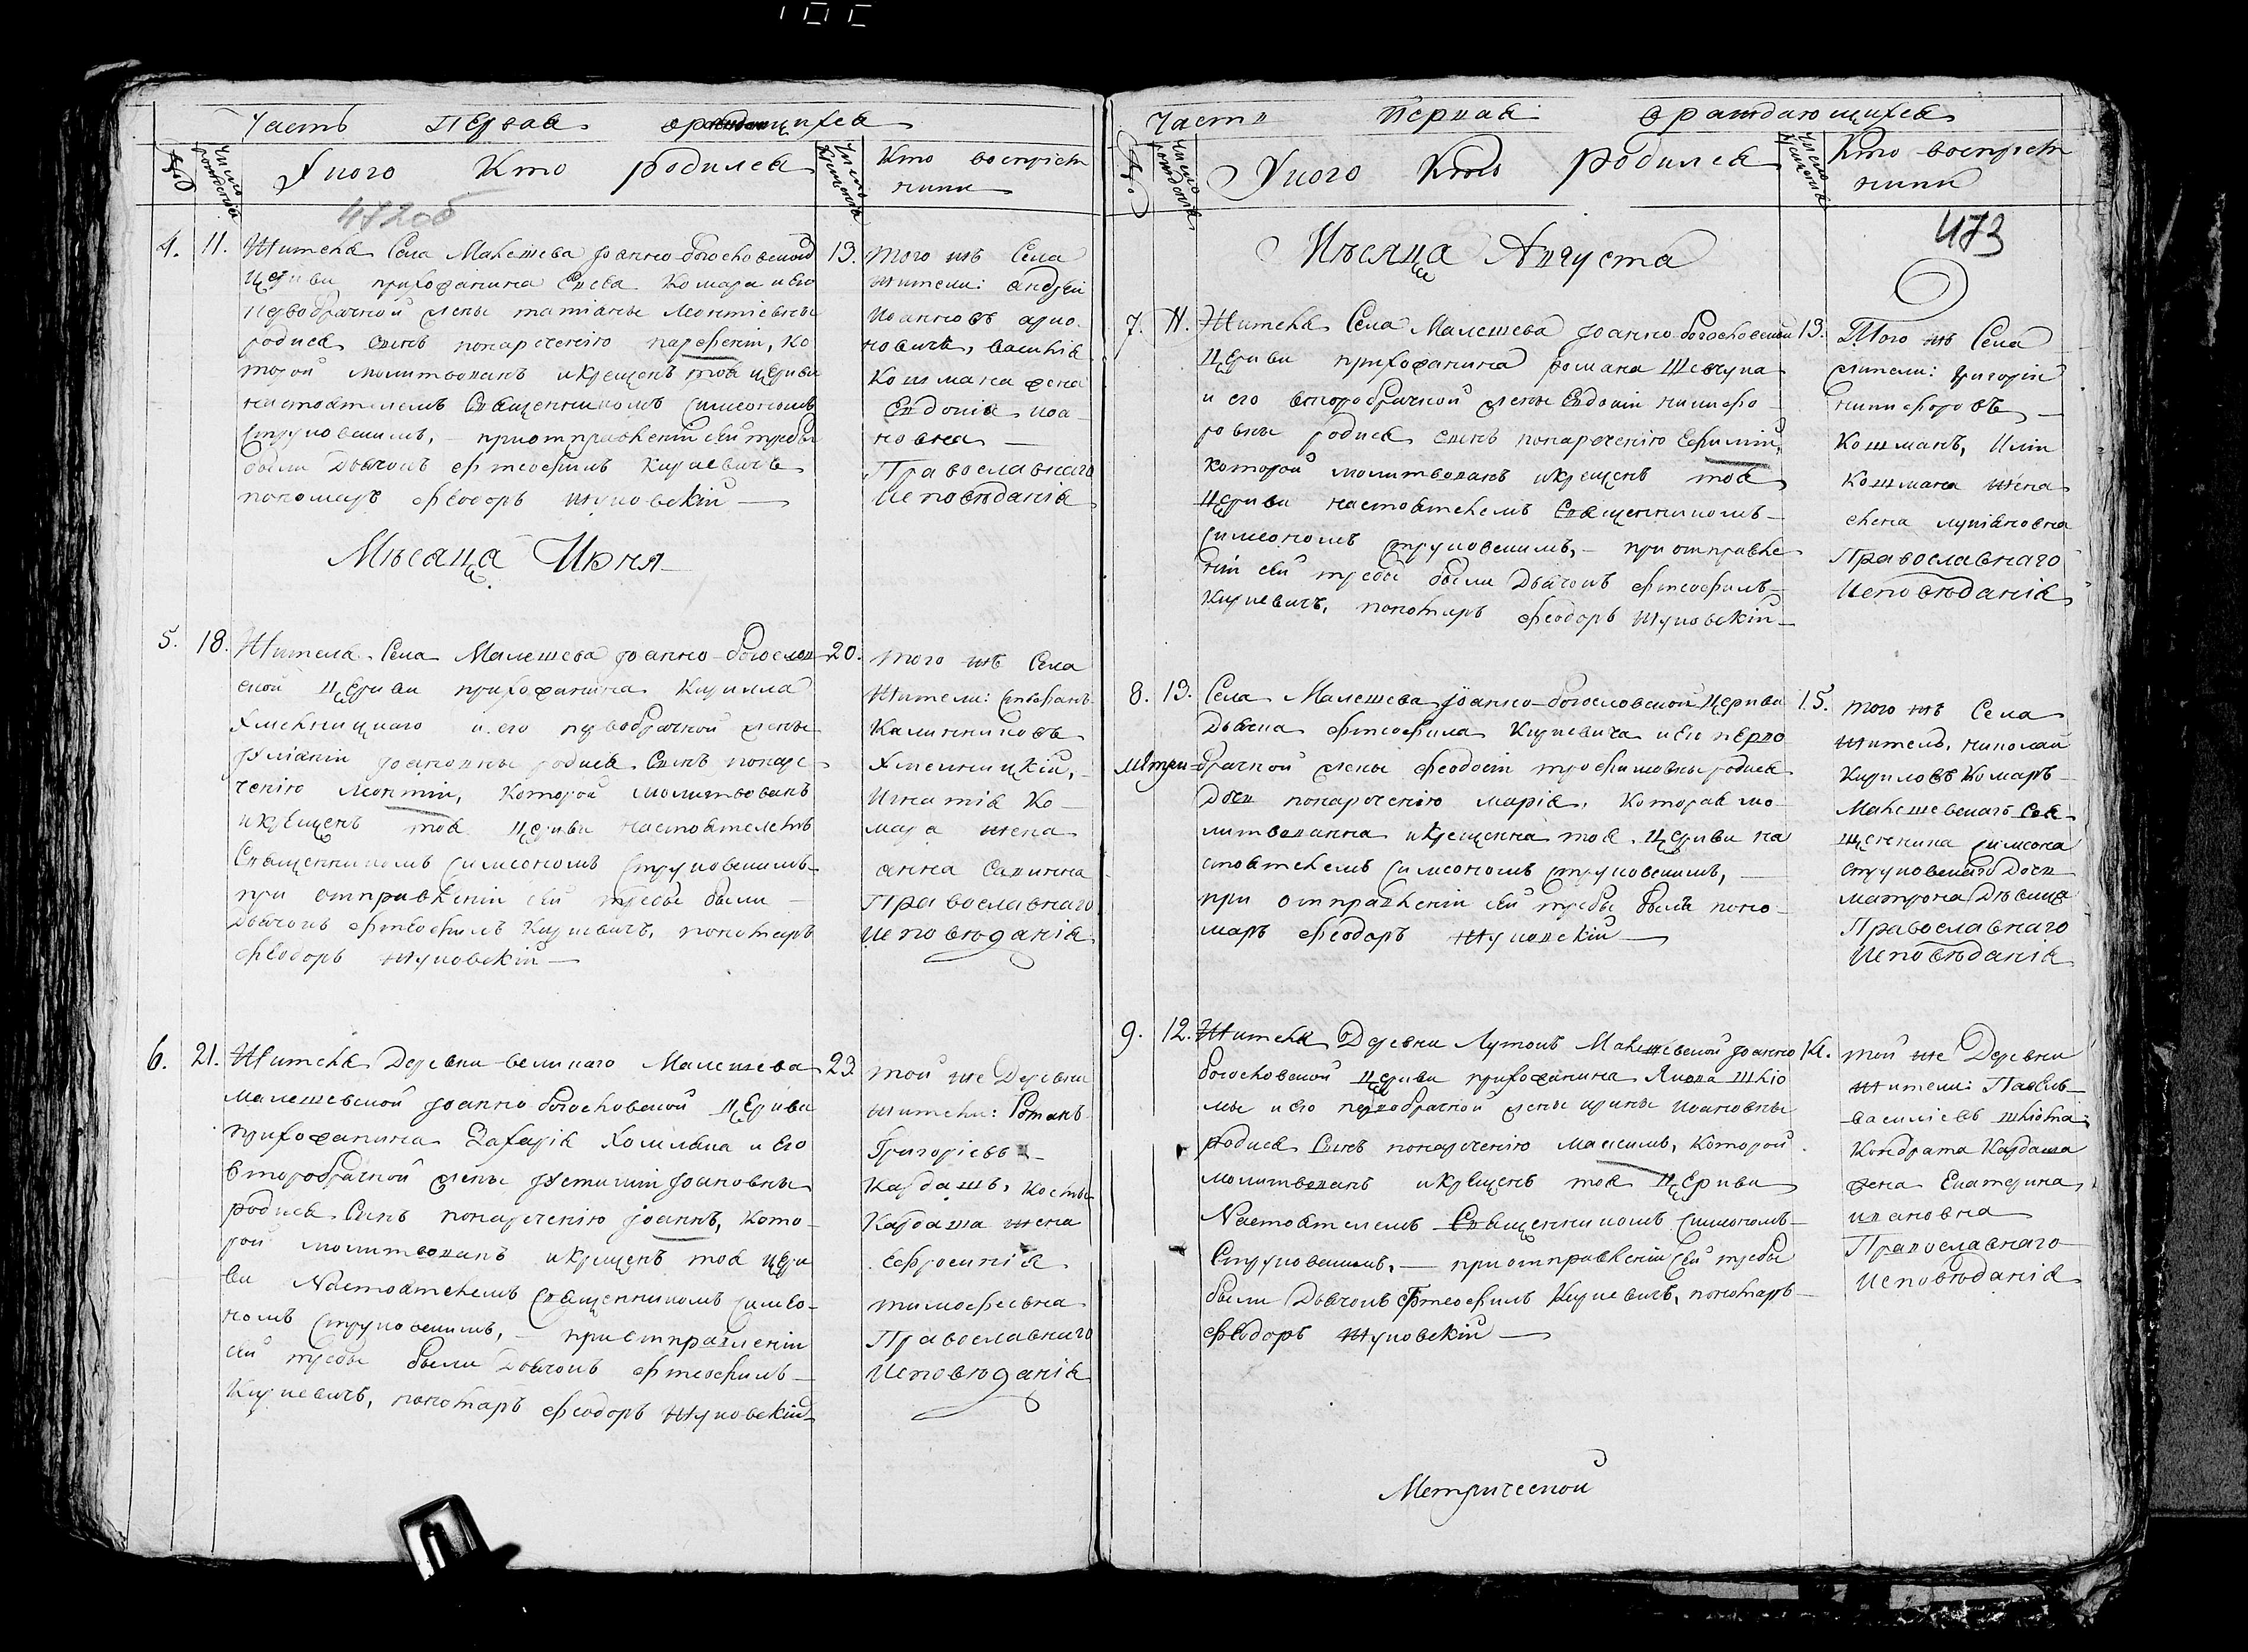 Часть Первая о раждающихся
Число рожденія
У кого Кто родился
Число крещенія
Кто воспріем
ники
472 об
4. 11. Жителя Села Малешева Іоанно-богословской 13.
Церкви прихожанина Савва Комара и его
первобрачной жены татіаны Леонтіевны
родися сынъ понареченію парфеній, Ко
торой молитвованъ и крещенъ тоя церкви
настоятелемъ Священникомъ Симеономъ
Струковскимъ, – приотправленіи сей требы
были Дьячокъ Фтеофилъ Кириевичъ
пономаръ Феодоръ Жуковскій —
того жъ Села
жители: андрей
Іоанновъ
новичъ, василія
Кошмана жена
Евдокія иоа-
новна —
Православнаго
Исповѣданія
Мѣсяца Июня
5. 18. Жителя Села Малешева Іоанно-богослов 20.
ской Церкви прихожанина Кирилла
Хмельницкаго и его первобрачной жены
Іуліаніи Іоановны родися Сынъ понаре
ченію Леонтій, Которой молитвованъ
и крещенъ тоя Церкви настоятелемъ
Священникомъ Симеономъ Струковскимъ
при отправленіи сей требы были —
Дьячокъ Фтеофилъ Кириевичъ, пономаръ
Феодоръ Жуковскій —
того жъ Села
Жители: Стефанъ
Калинниковъ
Хмелницкій, –
Игнатія Ко-
мара жена
анна Савинна
Православнаго
Исповѣданія
6. 21. Жителя Деревни великаго Малешева 23
малешевской Іоанно богословской Церкви
прихожанина Захарія Хомляка и его
второбрачной жены Іустиніи Іоановны
родися Сынъ понареченію Іоаннъ, Кото-
рой молитвованъ и крещенъ тоя Церк
ви Настоятелемъ Священникомъ Симео-
номъ Струковскимъ, – при отправленіи
сей требы были Дьячокъ Фтеофилъ
Кириевичъ, пономаръ Феодоръ Жуковскій
той же Деревни
жители: Романъ
Григоріевъ
Кардашъ, Косты
Кардаша жена
Ефросинія
тимофеевна
Православнаго
Исповѣданія
Часть Первая о раждающихся
Число рожденія
У кого Кто Родился
Число крещенія
Кто воспріем
ники
473
Мѣсяца Августа
7. 11. Жителя Села Малешева Іоанно-богословской 13.
Церкви прихожанина Романа Шевчука
и его второбрачной жены Евдокіи никифо-
ровны родися сынъ понареченію Ефимій,
которой молитвованъ и крещенъ тоя
Церкви настоятелемъ Священникомъ
Симеономъ Струковскимъ, – при отправле
ніи сей требы были Дьячокъ Фтеофилъ
Кириевичъ, пономаръ Феодоръ Жуковскій
Того жъ Села
жители: григорій
никифоровъ —
Кошманъ, Иліи
Кошмана жена
елена лукіановна
Православнаго
Исповѣданія
8. 13. Села Малешева Іоанно-богословской Церкви 15.
Дьячка Фтеофила Кириевича и Его перво
Мтри= брачной жены Феодосіи трофимовны родися
Дочь понареченію марія, Которая мо
литвованна и крещенна тоя Церкви на
стоятелемъ Симеономъ Струковскимъ, —
при отправленіи сей требы былъ поно-
маръ Феодоръ Жуковскій —
того жъ Села
житель, николай
Кириловъ Комаръ
Малешевскаго Свя
щенника Симеона
Струковскаго Дочь
матрона Дѣвица
Православнаго
Исповѣданія
9. 12. Жителя Деревни Лутокъ Малешевской Іоанно 14.
богословской Церкви прихожанина Якова Шкіо
мы и его первобрачной жены ирины иоановны
родися Сынъ понареченію Максимъ, Которой
молитвованъ и крещенъ тоя Церкви
Настоятелемъ Священникомъ Симеономъ
Струковскимъ, — при отправленіи сей требы
были Дьячокъ Фтеофилъ Кириевичъ, пономаръ
Феодоръ Жуковскій —
той же Деревни
жители: Павелъ
василіевъ
Кондрата Кардаша
жена Екатерина
ивановна
Православнаго
Исповѣданія
Метрической